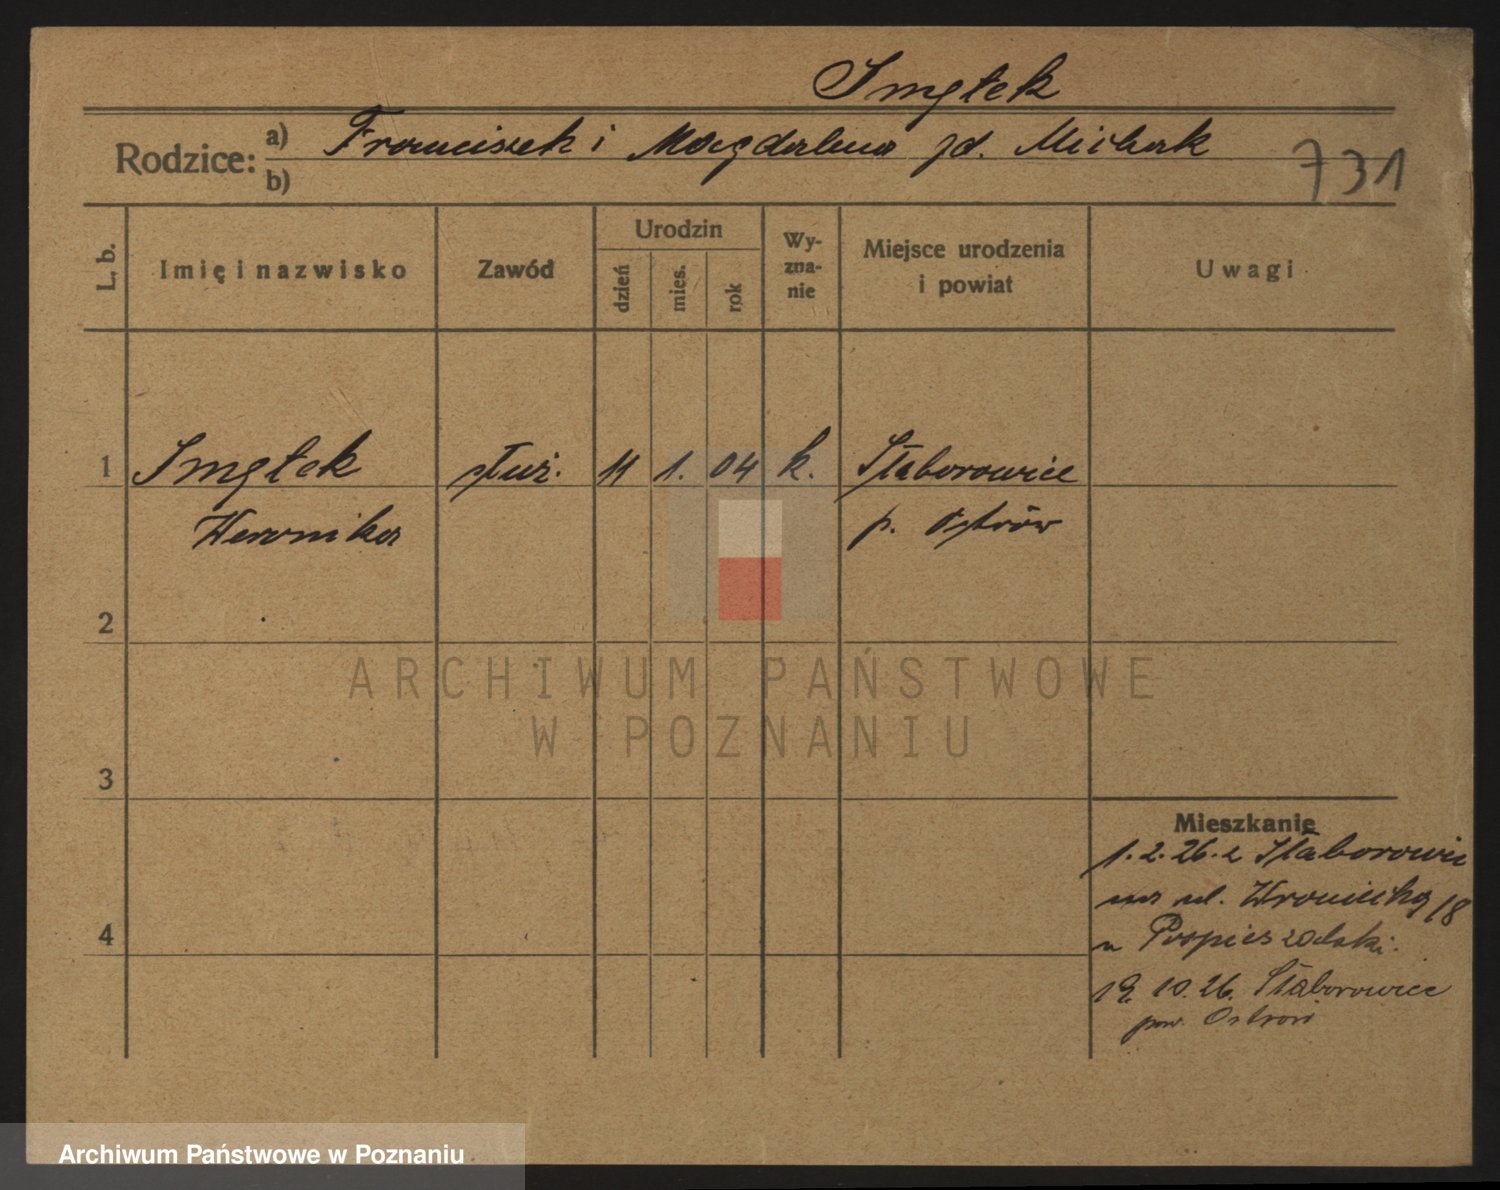 Smętek
Rodzice: a) Franciszek i Magdalena zd. Michak
b)
731
L. b.
Imię i nazwisko
Zawód
Urodzin
dzień
mies.
rok
Wy-
zna-
nie
Miejsce urodzenia
i powiat
Uwagi
1 Smętek służ. 11 1. 04 k. Słaborowice
Weronika p. Ostrów
2
3
4
Mieszkanie
1. 2. 26. z Słaborowic
na ul. Wroniecką 18
u Pospieszalski.
19. 10. 26. Słaborowice
pow. Ostrów
ARCHIWUM PAŃSTWOWE
W POZNANIU
Archiwum Państwowe w Poznaniu